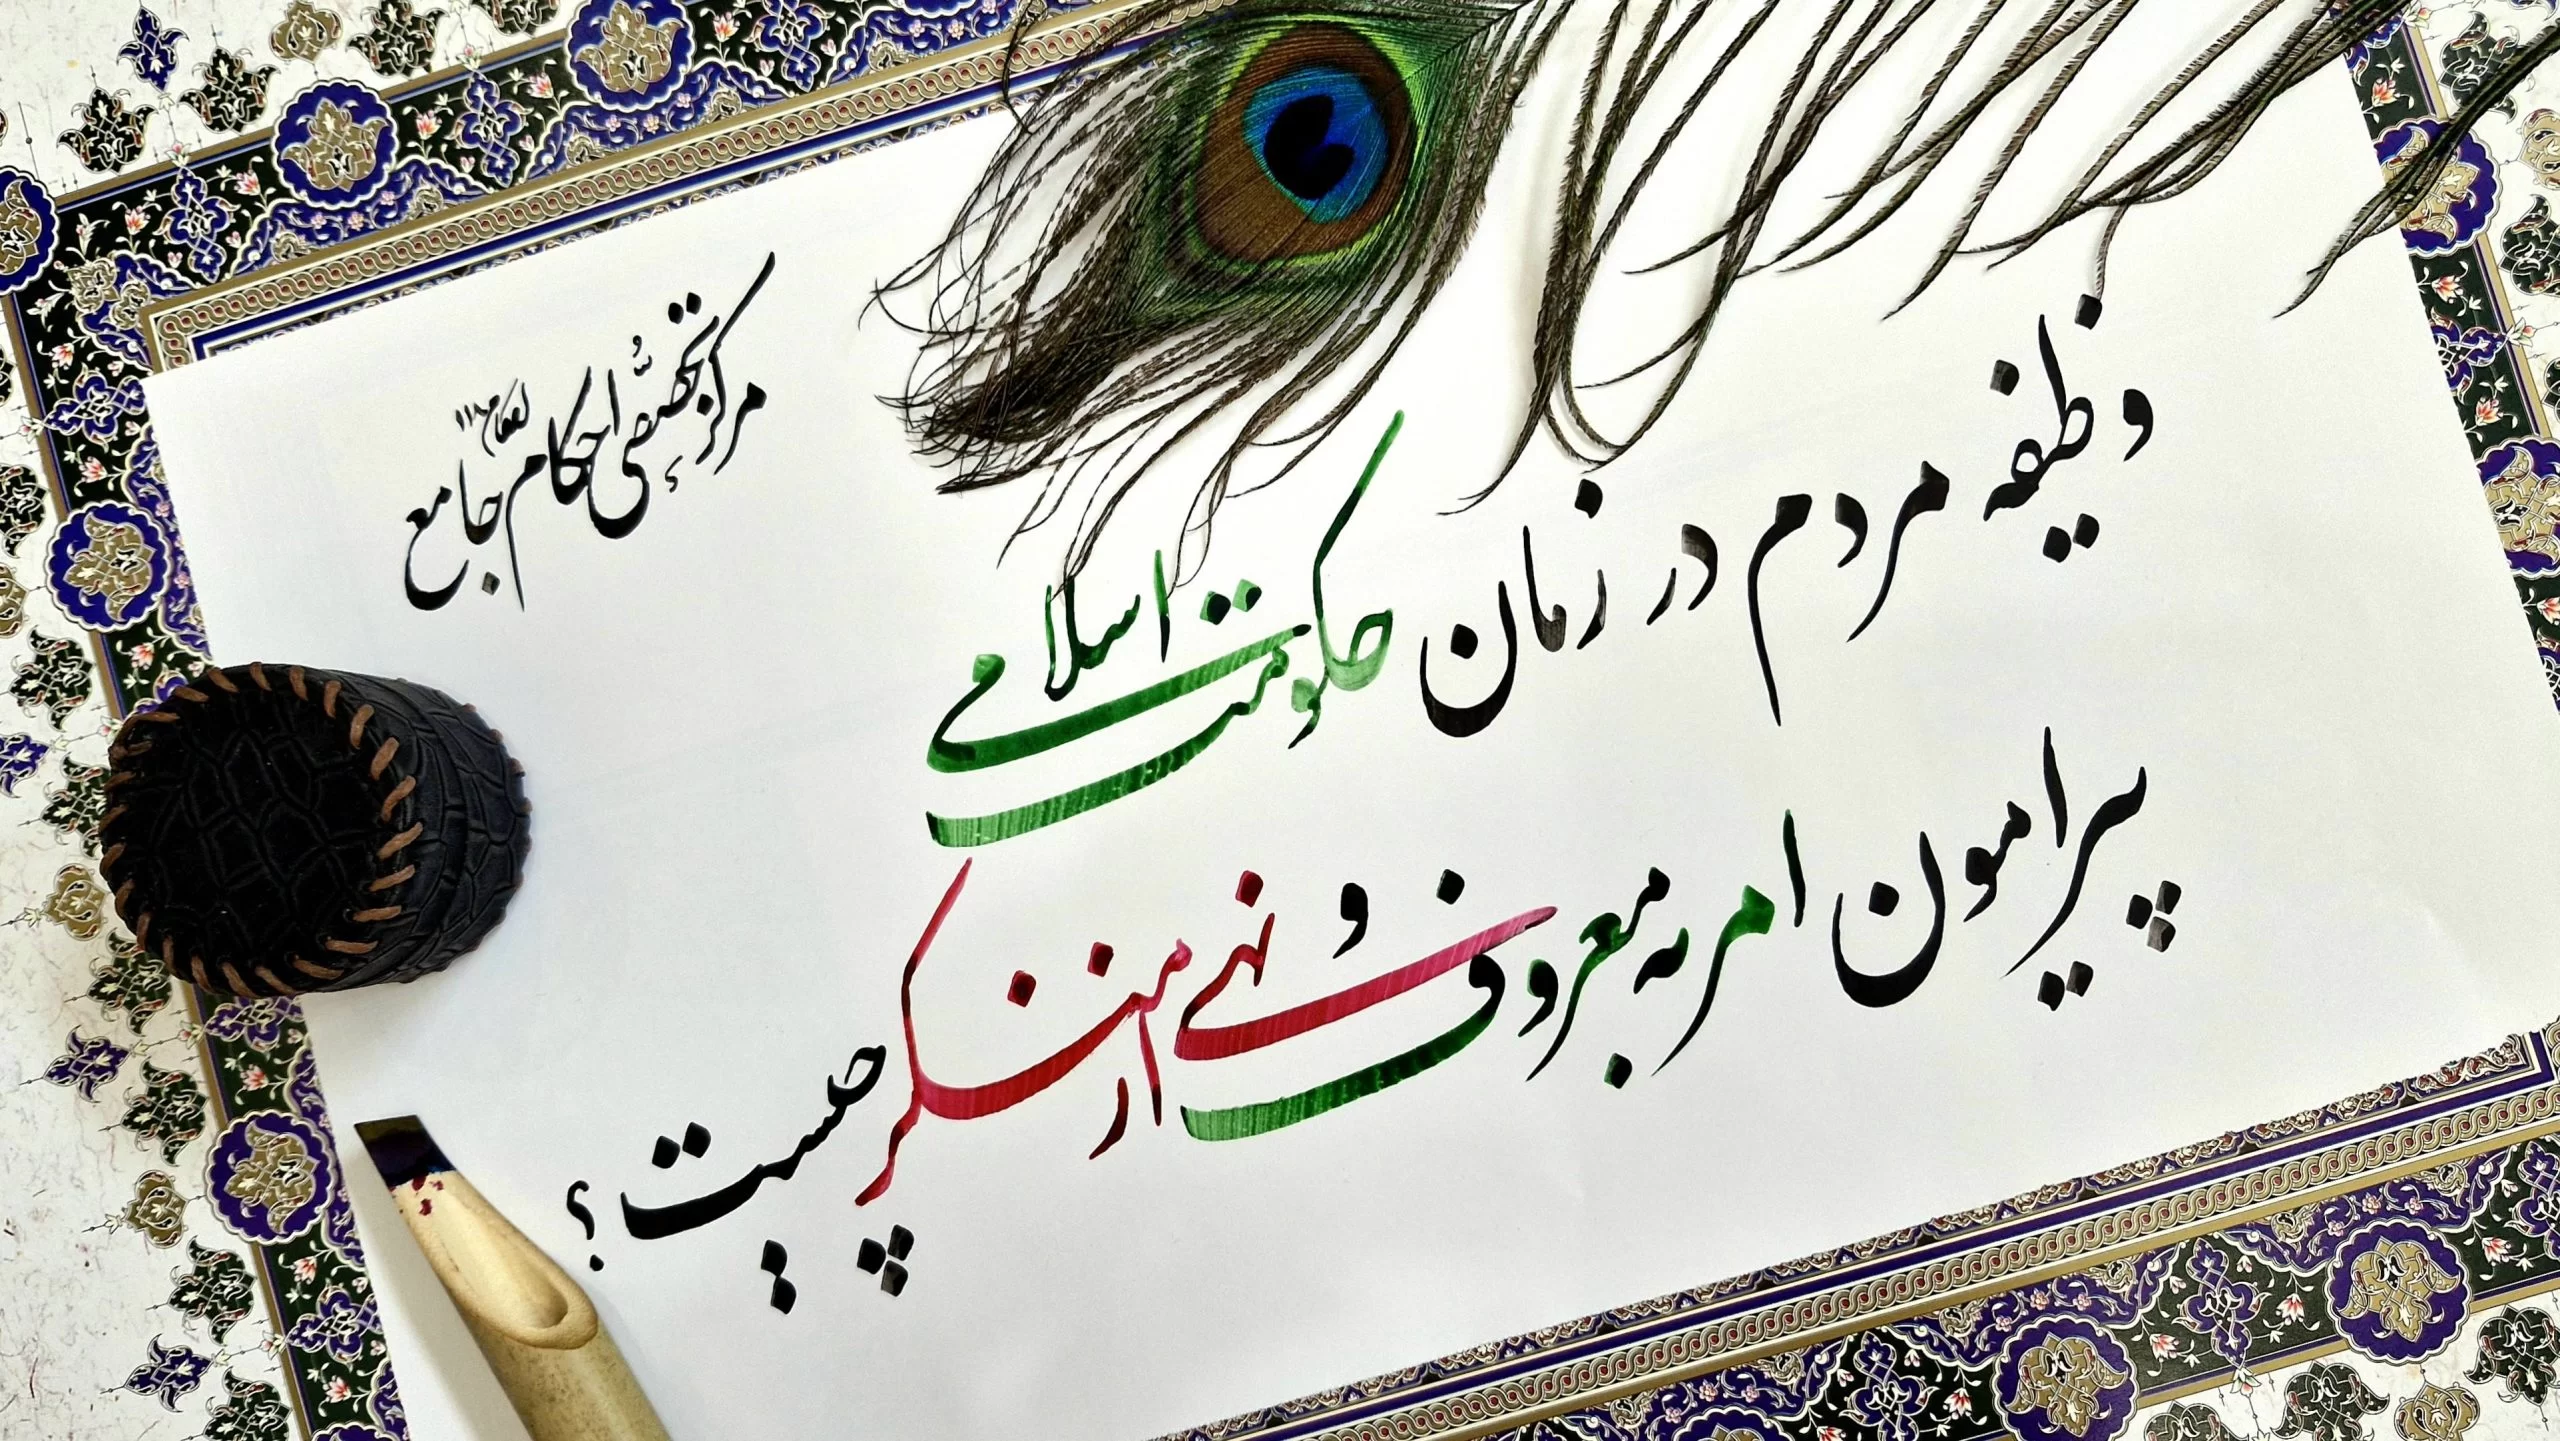 وظیفه مردم در زمان حکومت اسلامی
پیرامون امر به معروف و نهی از منکر چیست؟
مرکز تخصّصی احکام جامع